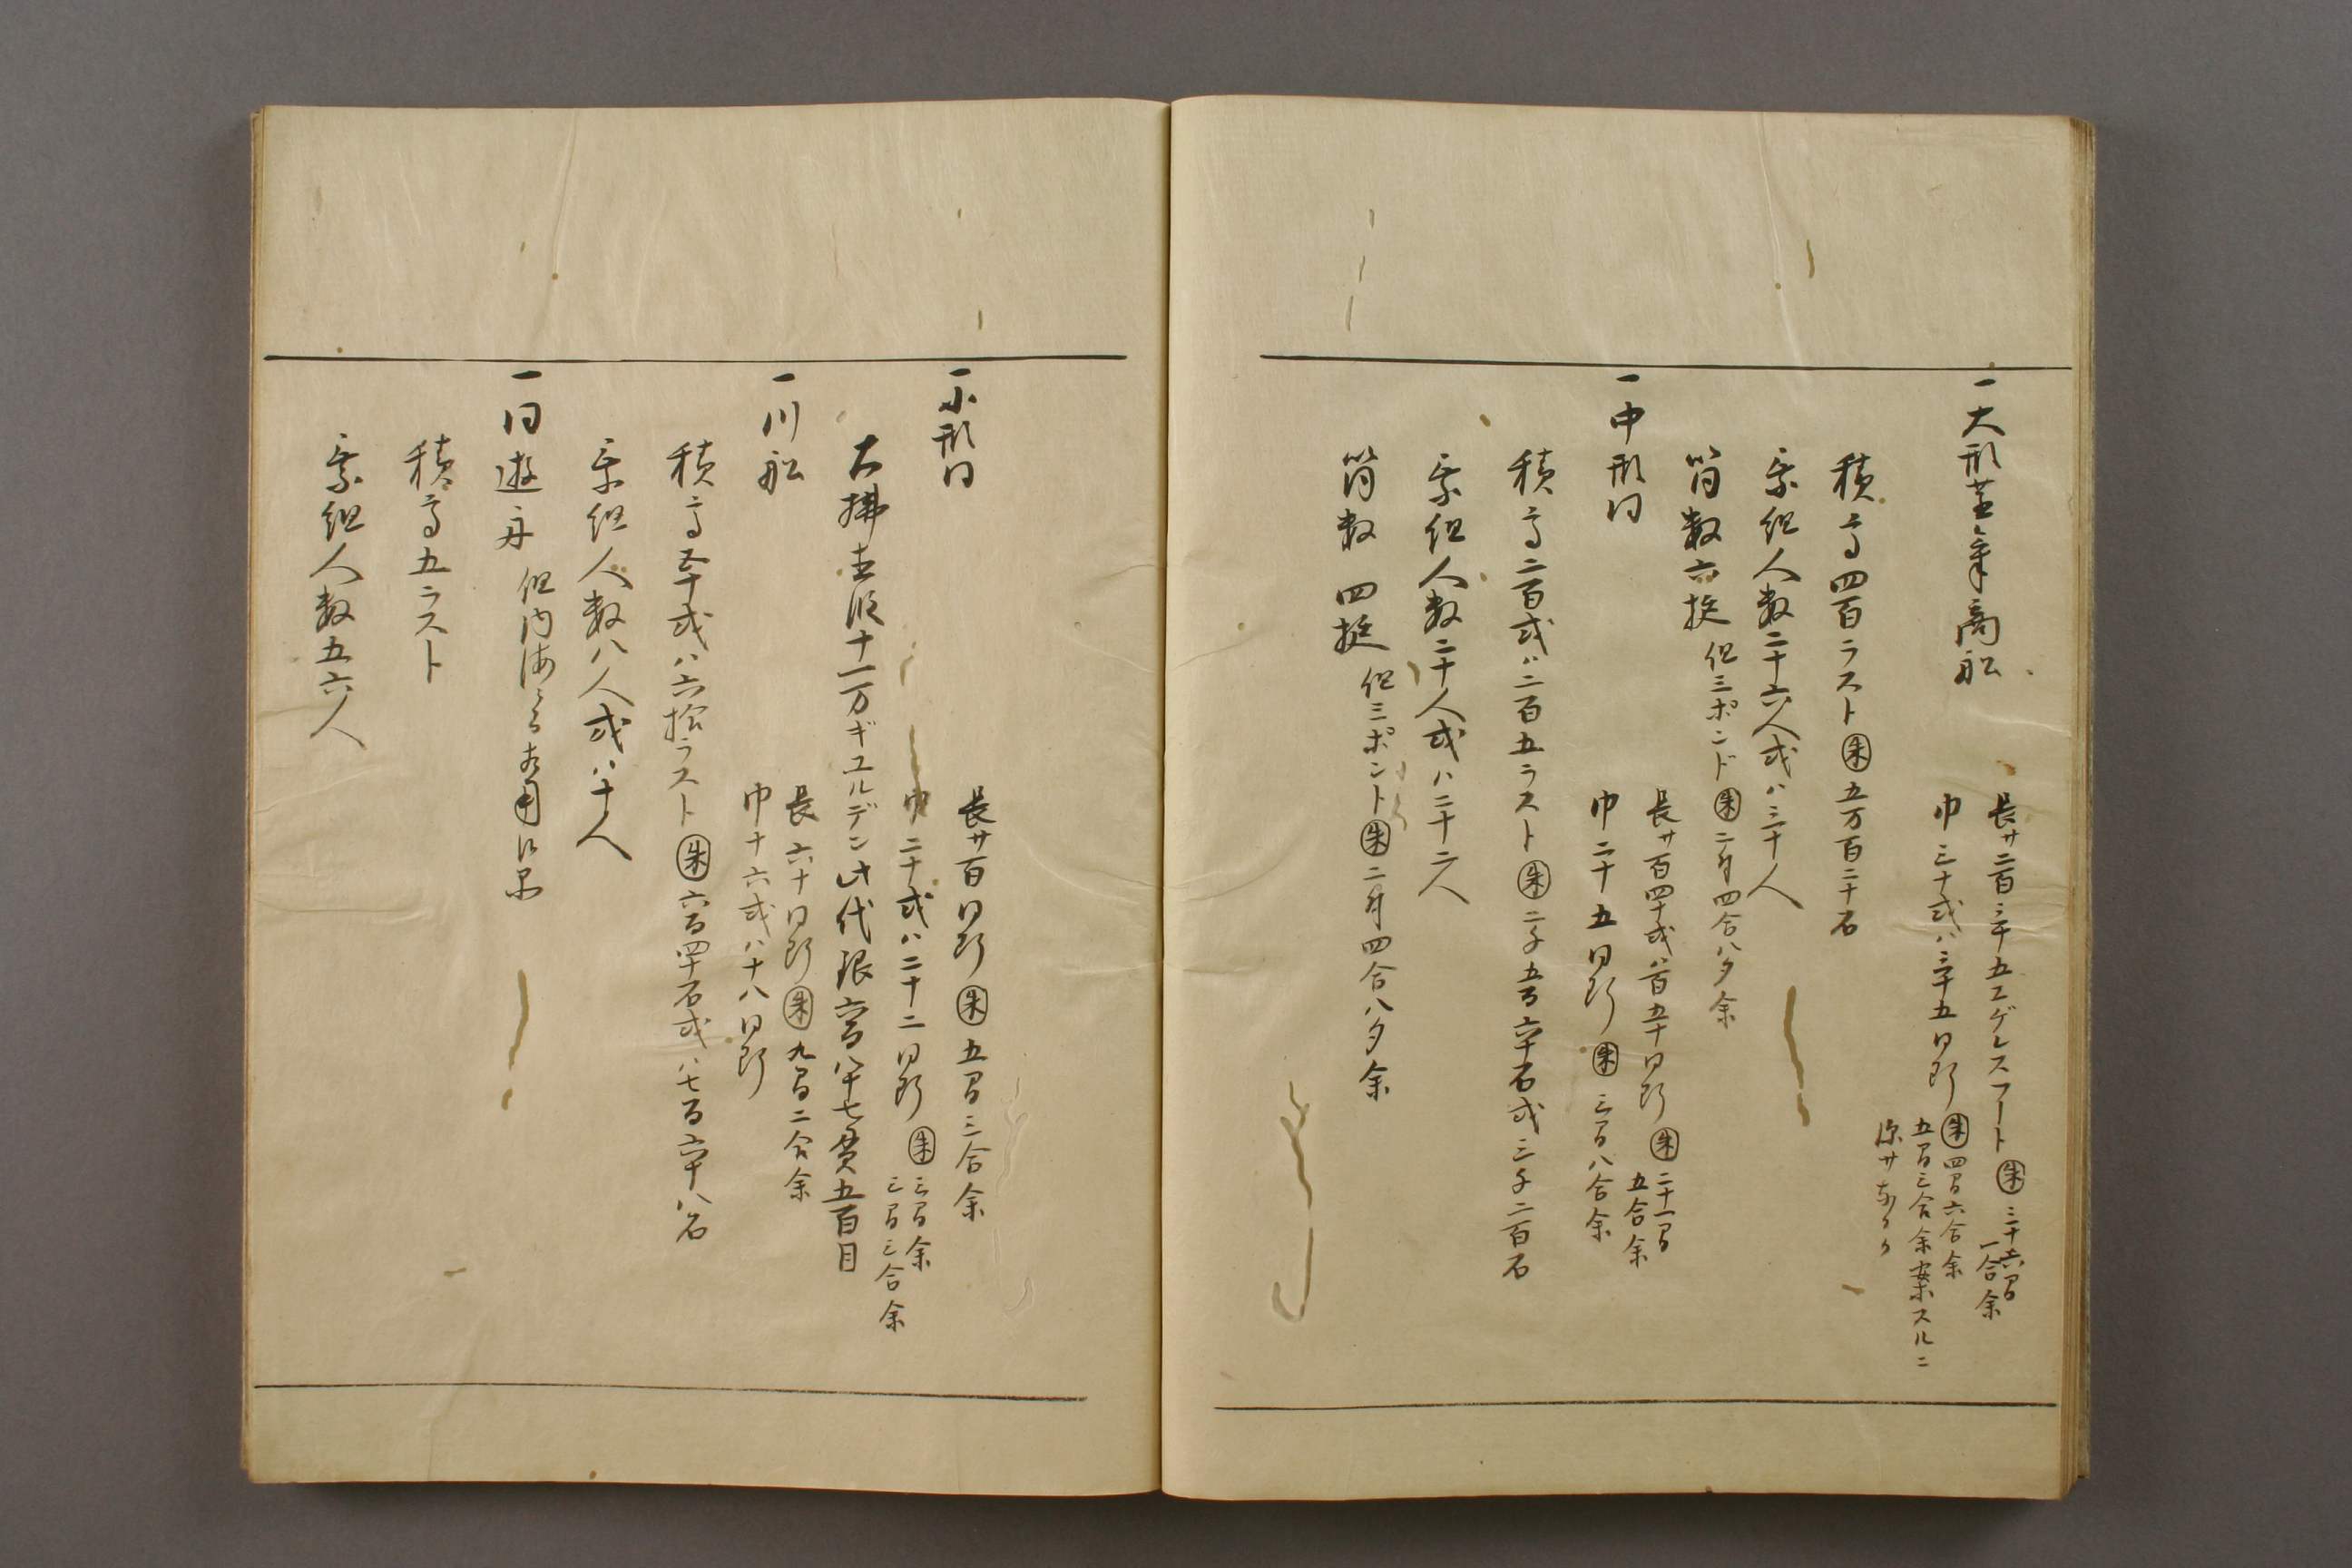 一大形蒸気商船
長サ二百三十五エゲレスフート㊍朱三十六間
一合余
巾三十或ハ三十五同断 朱 四間六合余
五間三合余案スルニ
深サナルカ
積高四百ラスト 朱 五万百二十石
乗組人数二十六人或ハ三十人
筒数六挺 但三ポンド 朱 二身四合八夕余
一中形同
長サ百四十或ハ百五十同断 朱 二十一間
五合余
巾二十五同断 朱 三間八合余
積高二百或ハ二百五ラスト 朱 二千五百六十石或三千二百石
乗組人数二十人或ハ二十二人
筒数 四挺 但三ポント 朱 二身四合八夕余
一小形同
長サ百同断 朱 五間三合余
巾二十或ハ二十二同断 朱 三間余
三間三合余
古拂直段十一万ギユルデン此代銀六百八十七貫五百目
一川船
長六十同断 朱 九間二合余
巾十六或ハ十八同断
積高五十或ハ六拾ラスト 朱 六百四十石或ハ七百六十八石
乗組人数八人或ハ十人
一同遊舟 但内海
積高五ラスト
乗組人数五六人